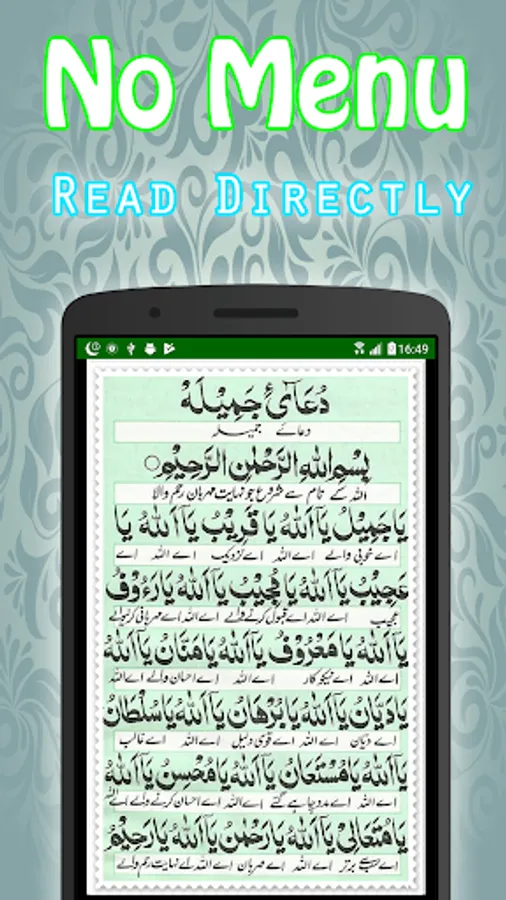 No Menu
READ DIRECTLY
16:49
دُعَائِ جَمِيْلَهْ
دعائے جمیلہ
بِسْمِ اللهِ الرَّحْمٰنِ الرَّحِيْمِ
اللہ کے نام سے شروع جو نہایت مہربان رحم والا
يَا جَمِيْلُ يَا اَللهُ يَا قَرِيْبُ يَا اَللهُ يَا
اے خوبی والے اے اللہ اے نزدیک اے اللہ اے
عَجِيْبُ يَا اَللهُ يَا مُجِيْبُ يَا اَللهُ يَا رَءُوْفُ
عجیب اے اللہ اے قبول کرنے والے اے اللہ اے مہربانی کرنیوالے
يَا اَللهُ يَا مَعْرُوْفُ يَا اَللهُ يَا مَنَّانُ يَا اَللهُ
اے اللہ اے نیکوکار اے اللہ اے احسان والے اے اللہ
يَا دَيَّانُ يَا اَللهُ يَا بُرْهَانُ يَا اَللهُ يَا سُلْطَانُ
اے دیان اے اللہ اے قوی دلیل اے اللہ اے غالب
يَا اَللهُ يَا مُسْتَعَانُ يَا اَللهُ يَا مُحْسِنُ يَا اَللهُ
اے اللہ اے مدد چاہے گئے اے اللہ اے احسان کرنے والے اے اللہ
يَا مُتَعَالِيْ يَا اَللهُ يَا رَحْمٰنُ يَا اَللهُ يَا رَحِيْمُ
برتر اے اللہ اے مہربان اے اللہ اے نہایت رحم والے